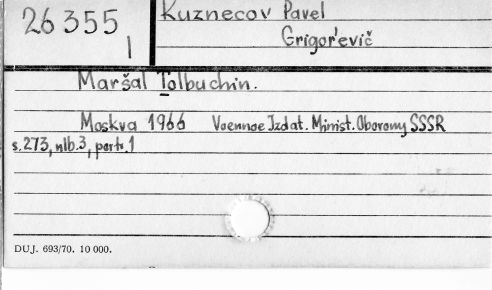 26 355
1
Kuznecov Pavel
Grigor'evič
Maršal Tolbuchin.
Moskva 1966 Voennoe Izdat. Minist. Oborony SSSR
s.273, nlb.3, portr.1
DUJ. 693/70. 10 000.